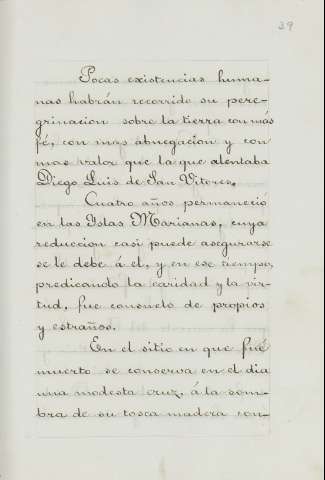 39
Pocas existencias huma-
nas habrán recorrido su pere-
grinacion sobre la tierra con más
fé, con mas abnegacion y con
mas valor que la que alentaba
Diego Luis de San Vitores.
Cuatro años permaneció
en las Yslas Marianas, cuya
reduccion casi puede asegurarse
se le debe á él, y en ese tiempo,
predicando la caridad y la vir-
tud, fue consuelo de propios
y estraños.
En el sitio en que fué
muerto se conserva en el dia
una modesta cruz, á la som-
bra de su tosca madera con-